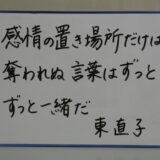 感情の置き場所だけは
奪われぬ言葉はずっと
ずっと一緒だ
東直子